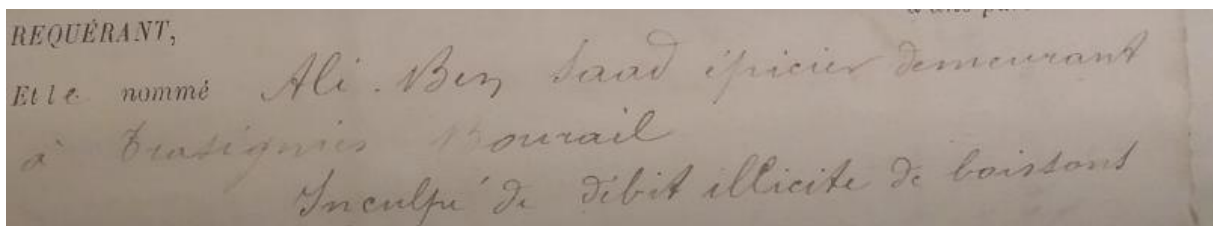 REQUÉRANT,
Et le nommé Ali. Ben Saad épicier demeurant
à Trasignies Bourail
Inculpé de débit illicite de boissons